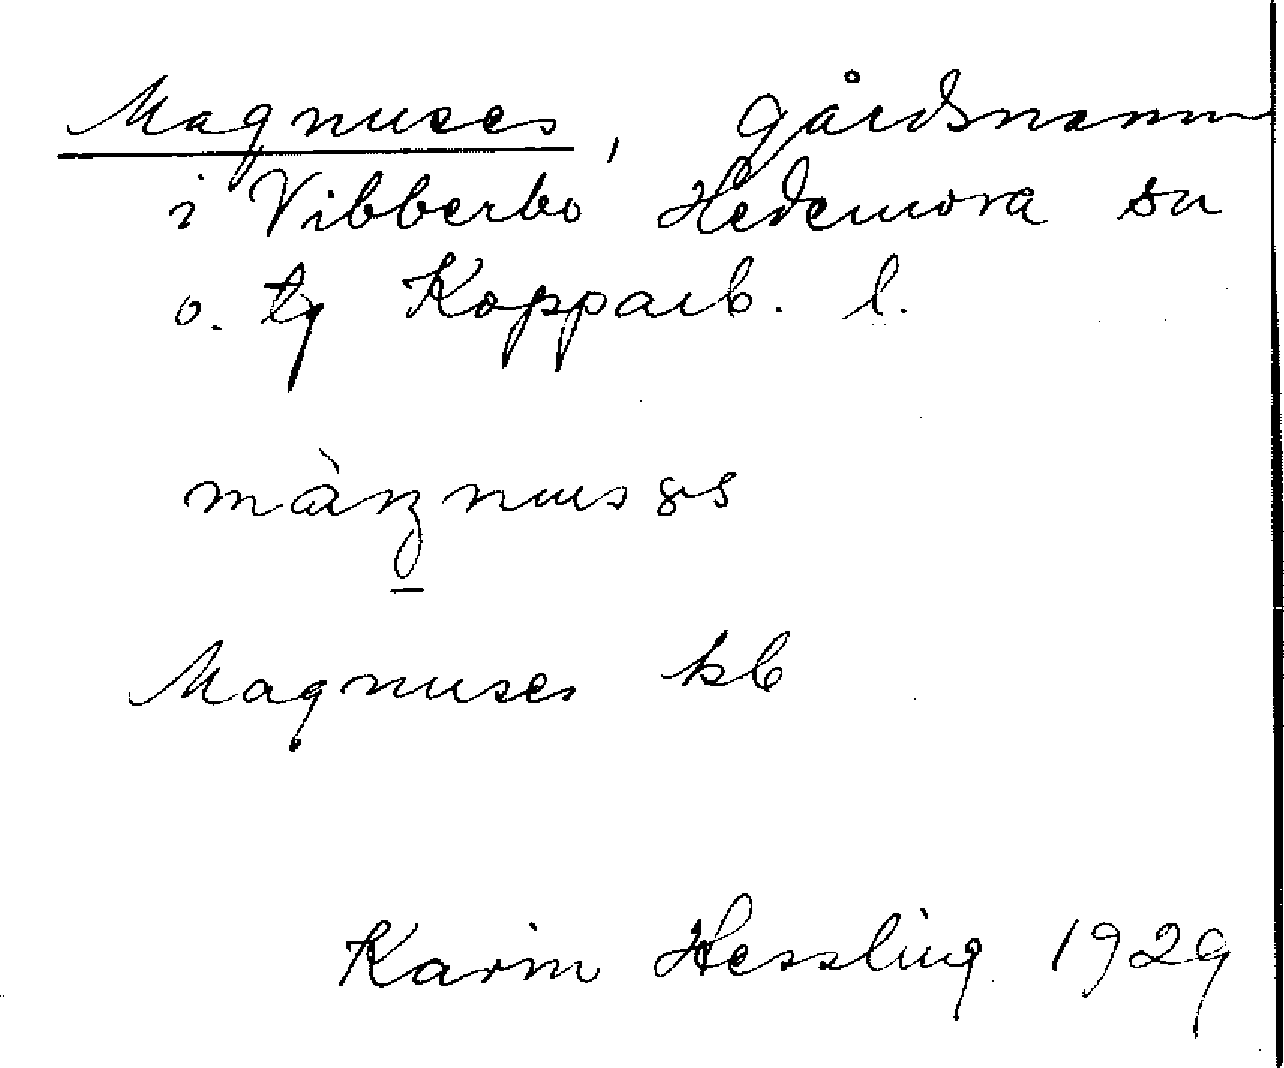 Magnuses, gårdsnamn
i Vibberbo Hedemora sn
o. tg Kopparb. l.
màŋnusəs
Magnuses kb
Karin Hessling 1929